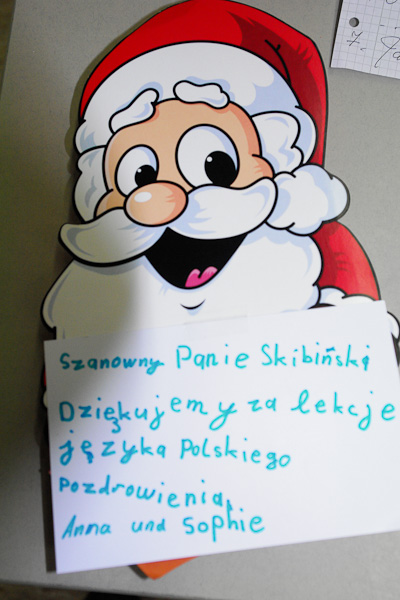 7.
Szanowny Panie Skibińskį
Dziękujemy za lekcje
języka Polskiego
Pozdrowienia,
Anna und Sophie